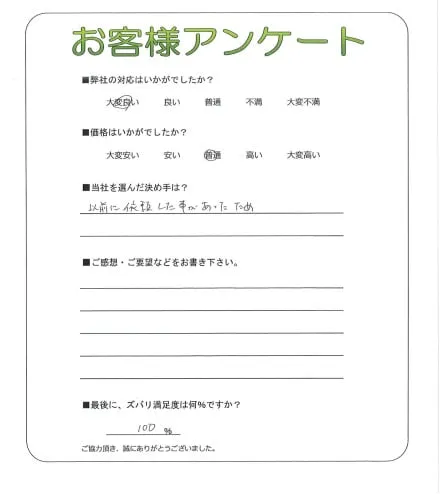 お客様アンケート
■弊社の対応はいかがでしたか？
大変良い 良い 普通 不満 大変不満
■価格はいかがでしたか？
大変安い 安い 普通 高い 大変高い
■当社を選んだ決め手は？
以前に依頼した事があったため
■ご感想・ご要望などをお書き下さい。
■最後に、ズバリ満足度は何%ですか？
100 %
ご協力頂き、誠にありがとうございました。